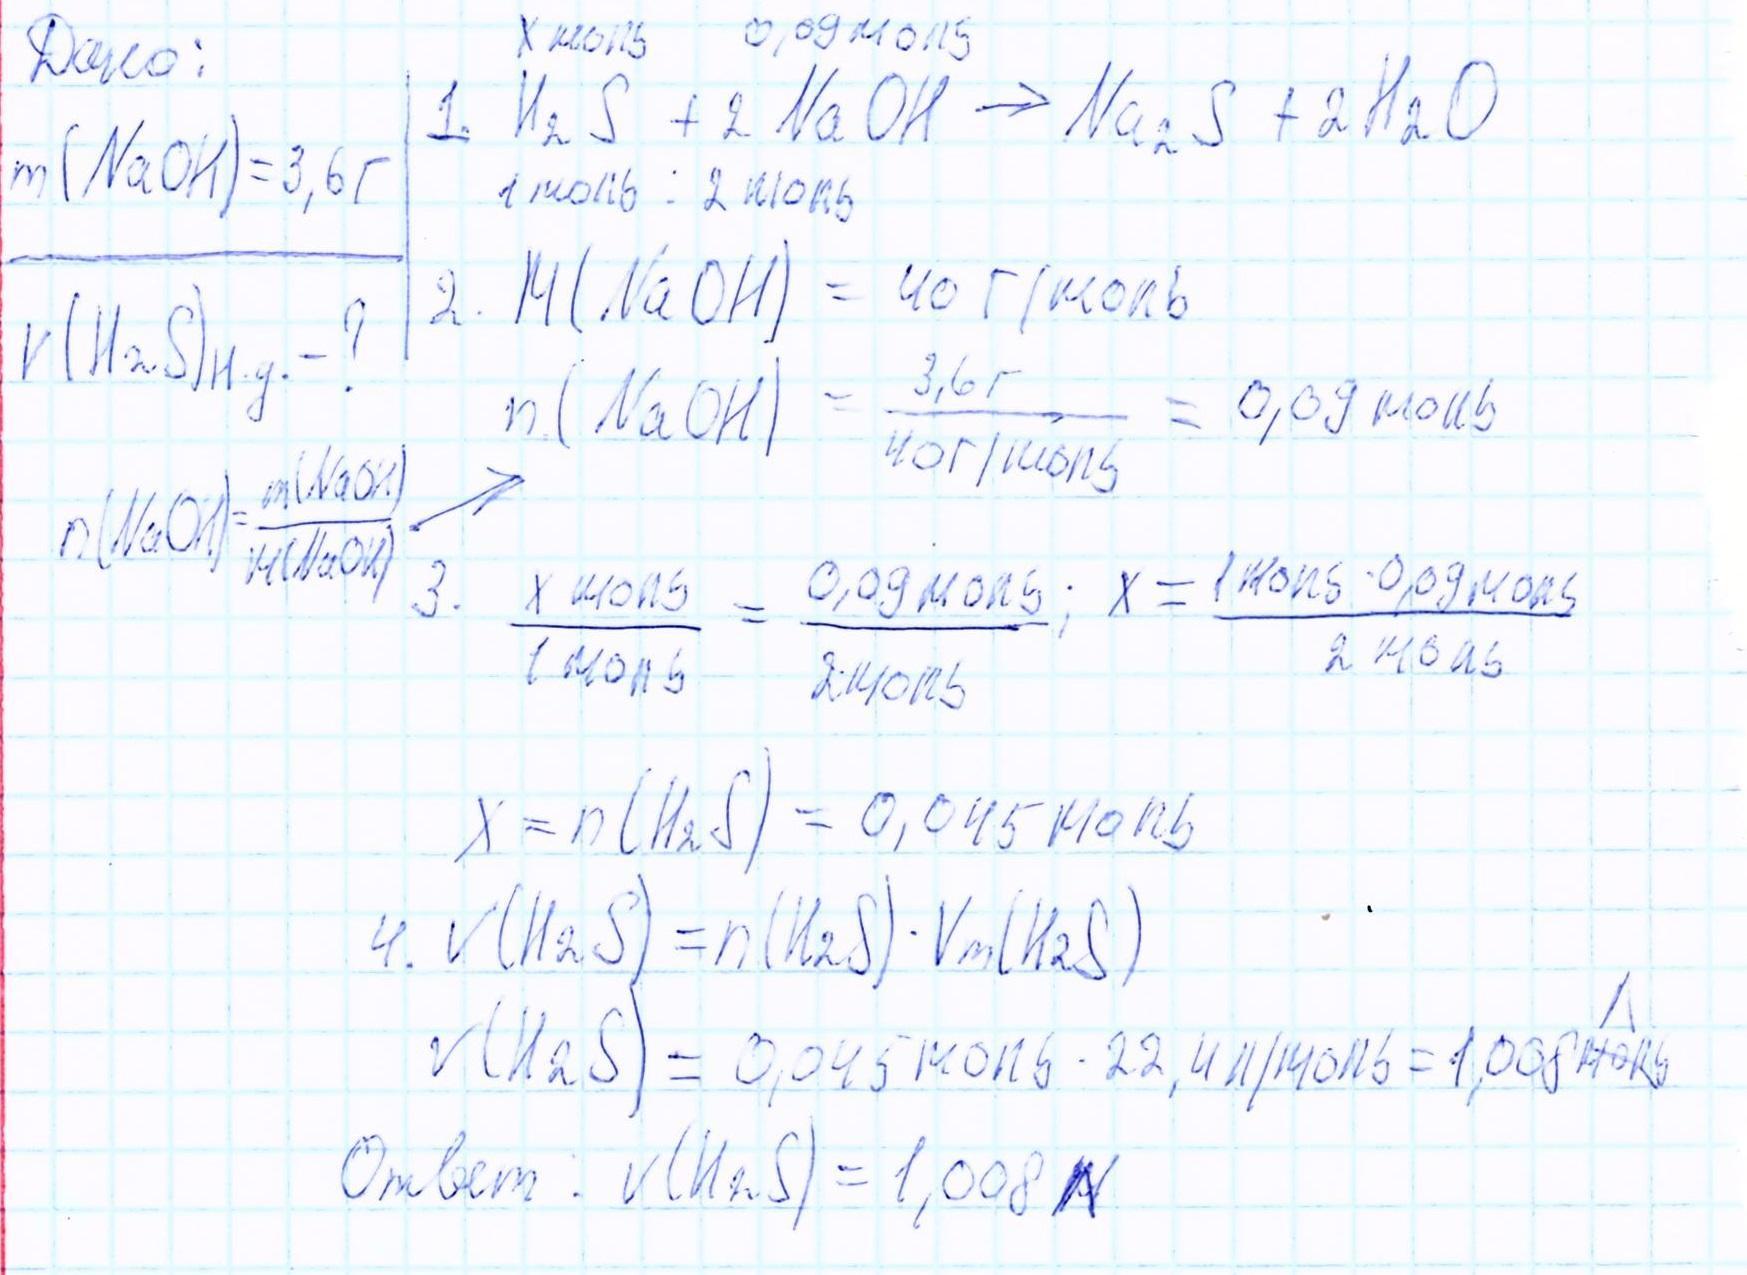 Дано:
m(NaOH)=3,6г
V(H₂S)н.у.-?
n(NaOH)=m(NaOH)/M(NaOH) →
x моль 0,09 моль
1. H₂S + 2NaOH → Na₂S + 2H₂O
1 моль : 2 моль
2. M(NaOH) = 40 г/моль
n(NaOH) = 3,6г/40г/моль = 0,09 моль
3. x моль/1 моль = 0,09 моль/2 моль; x = 1 моль · 0,09 моль/2 моль
x = n(H₂S) = 0,045 моль
4. V(H₂S) = n(H₂S) · Vm(H₂S)
V(H₂S) = 0,045 моль · 22,4 л/моль = 1,008 л
Ответ: V(H₂S) = 1,008 л